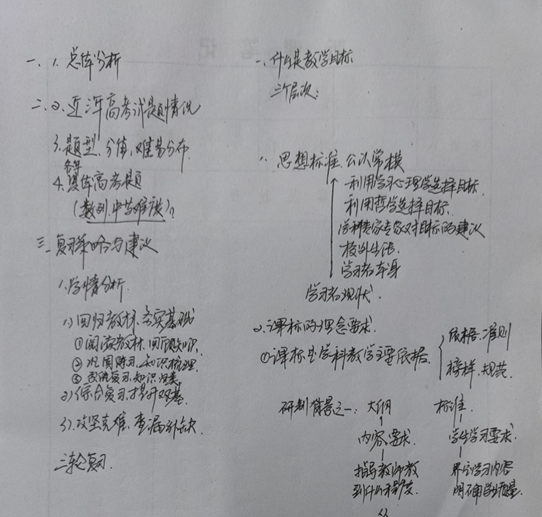 一、1.总体分析
二、2.近年高考试题情况
3.题型、分值、难易分布
4.具体高考题
(数列.中等难度)。
三、复习策略与建议
1.学情分析
1)回归教材.夯实基础
①阅读教材.回顾知识
2)综合复习.提升
3)攻坚克难.查漏补缺.
二轮复习.
一、什么是教学目标
三个层次:
思想标准 公认常模
利用学习心理学选择目标.
利用哲学选择目标.
学科专家对目标的建议
校外生活
学习者本身
学习者现状
2.课标的理念要求.
①课标是学科教学主要依据.
依据.准则
榜样.规范
研制背景之一: 大纲 标准
内容要求 学生学习要求.
指导教师教 界定学习内容
到什么程度 明确学业质量